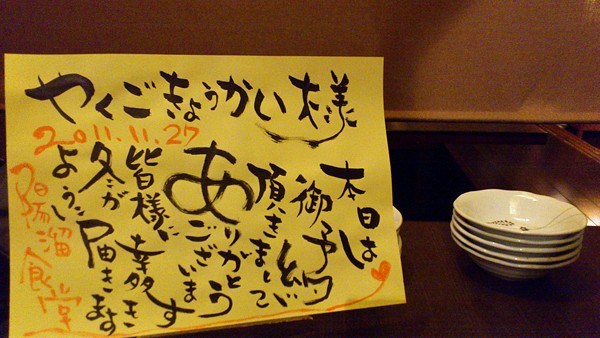 やくごきょうかい様
2011.11.27
本日は
御予約
頂きまして
ありがとう
ございます
皆様に
幸多き
冬が
届きます
よう
陽溜食堂